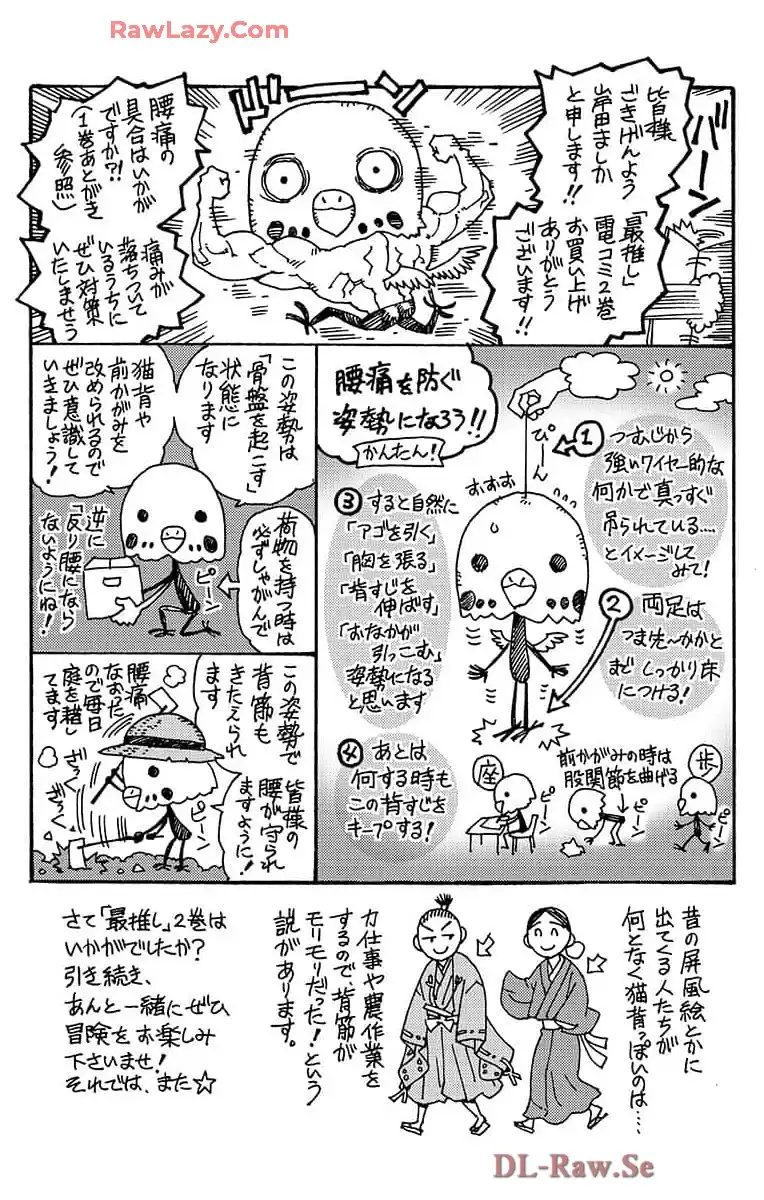 RawLazy.Com
バーン
皆様
ごきげんよう
岸田ましか
と申します!!
「最推し」
電コミ2巻
お買い上げ
ありがとう
ございます!!
ドーーン
腰痛の
具合はいかが
ですか?!
(1巻あとがき
参照)
痛みが
落ちついて
いるうちに
ぜひ対策
いたしませう
腰痛を防ぐ
姿勢になろう!!
かんたん!
ぴーん
①つむじから
強いワイヤー的な
何かで真っすぐ
吊られている....
とイメージして
みて!
おすすす
②両足は
つま先〜かかと
までしっかり床
につける!
③すると自然に
「アゴを引く」
「胸を張る」
「背すじを
伸ばす」
「おなかが
引っこむ」
姿勢になる
と思います
④あとは
何する時も
この背すじを
キープする!
座
ピーン
前かがみの時は
股関節を曲げる
ピーン
歩
ピーン
この姿勢は
「骨盤を起こす」
状態に
なります
猫背や
前かがみを
改められるので
ぜひ意識して
いきましょう!
荷物を持つ時は
必ずしゃがんで
ピーン
逆に
「反り腰」になら
ないようにね!
この姿勢で
背筋も
きたえられ
ます
皆様の
腰が守られ
ますように!
腰痛
なおった
ので毎日
庭を耕し
てます
ざっく
ざっく
ピーン
昔の屏風絵とかに
出てくる人たちが
何となく猫背っぽいのは....
力仕事や農作業を
するので、背筋が
モリモリだった!という
説があります。
さて「最推し」2巻は
いかがでしたか?
引き続き、
あんと一緒にぜひ
冒険をお楽しみ
下さいませ!
それでは、また☆
DL-Raw.Se